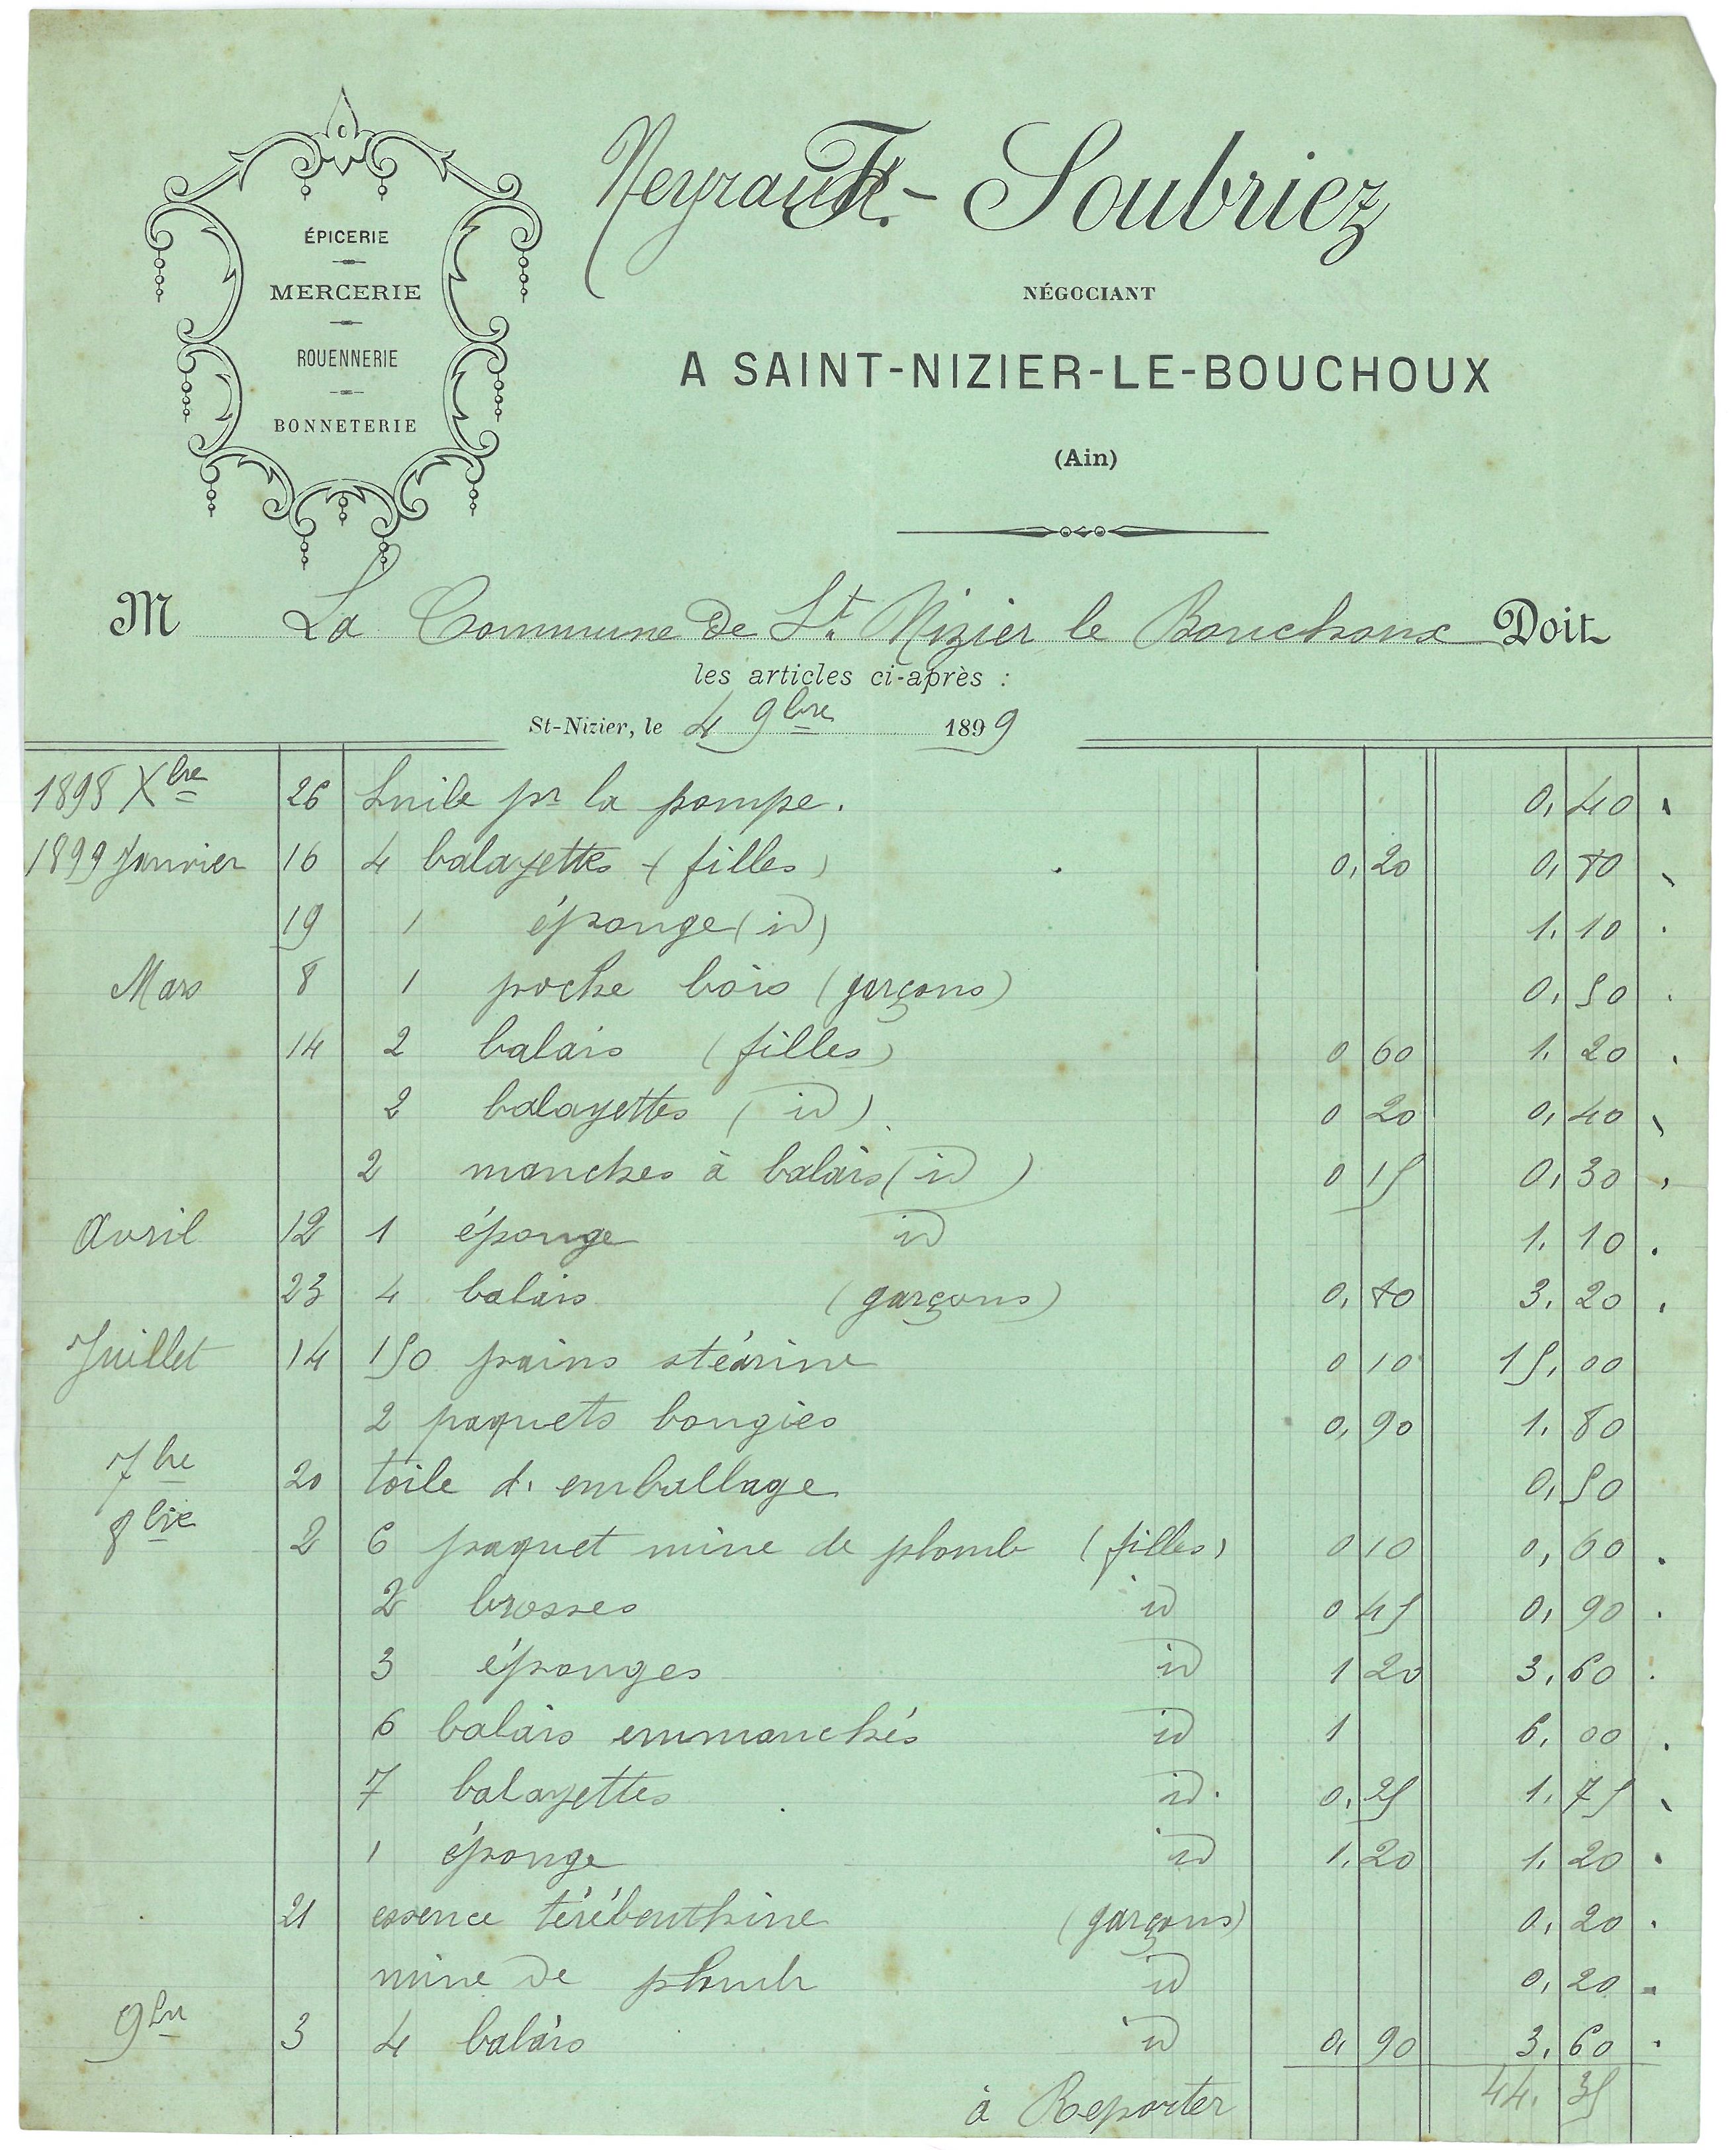 ÉPICERIE
MERCERIE
ROUENNERIE
BONNETERIE
Neyraud - Soubriez
NÉGOCIANT
A SAINT-NIZIER-LE-BOUCHOUX
(Ain)
M La Commune de St. Nizier le Bouchoux Doit
les articles ci-après :
St-Nizier, le 4 9bre 1899
1898 Xbre 26 huile pr la pompe. 0,40
1899 Janvier 16 4 balayettes (filles) 0,20 0,80
19 1 éponge (id) 1.10
Mars 8 1 poche bois (garçons) 0,50
14 2 balais (filles) 0 60 1.20
2 balayettes (id) 0 20 0,40
2 manches à balais (id) 0 15 0,30
Avril 12 1 éponge id 1.10
23 4 balais (garçons) 0,80 3.20
Juillet 14 150 pains stéarine 0 10 15,00
2 paquets bougies 0,90 1.80
7bre 20 toile d'emballage 0,50
8bre 2 6 paquet mine de plomb (filles) 0 10 0,60
2 brosses id 0 45 0,90
3 éponges id 1 20 3,60
6 balais emmanchés id 1 6,00
7 balayettes id. 0,25 1.75
1 éponge id 1.20 1.20
21 essence térébenthine (garçons) 0,20
mine de plomb id 0,20
9bre 3 4 balais id 0,90 3,60
à Reporter 44.35